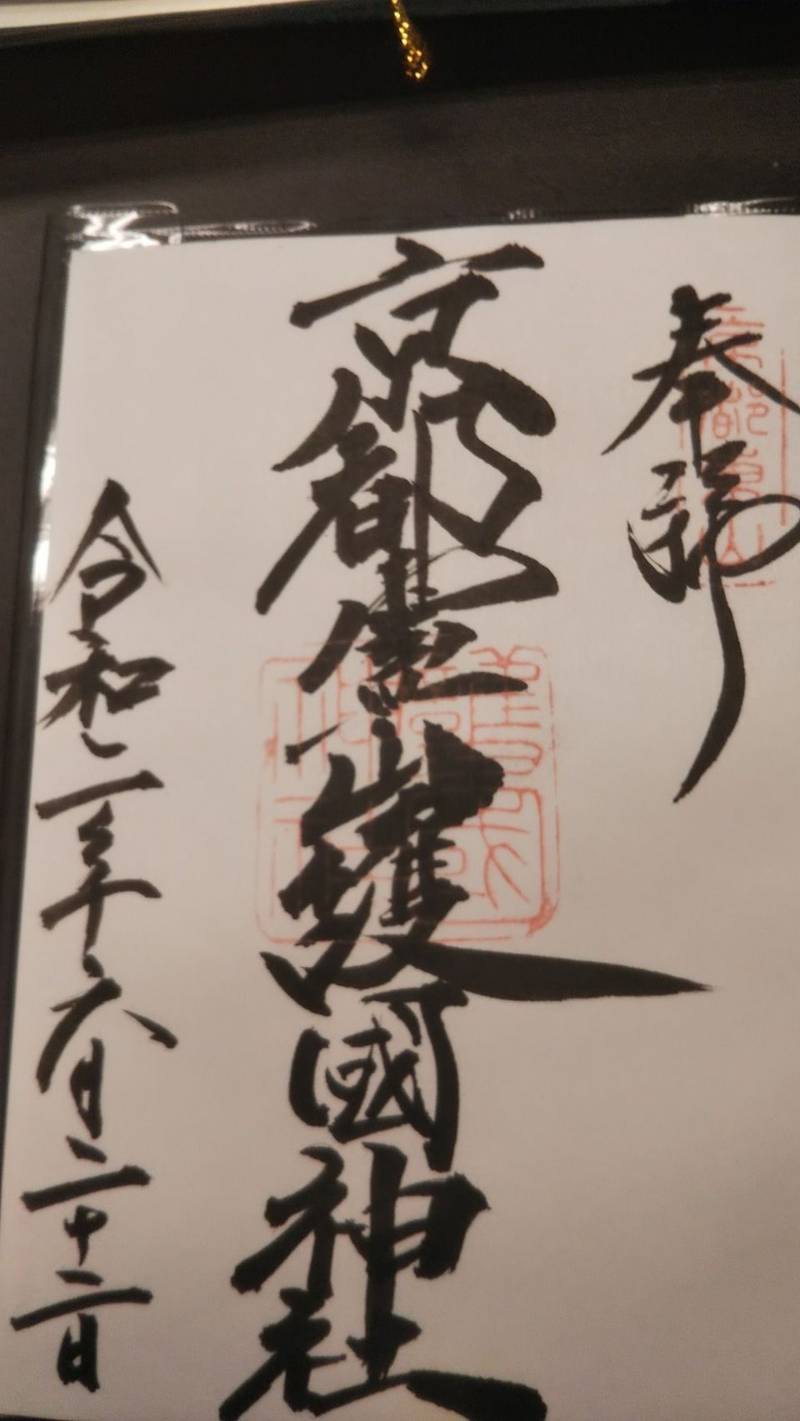 奉拝
京都霊山護國神社
令和二年六月二十二日